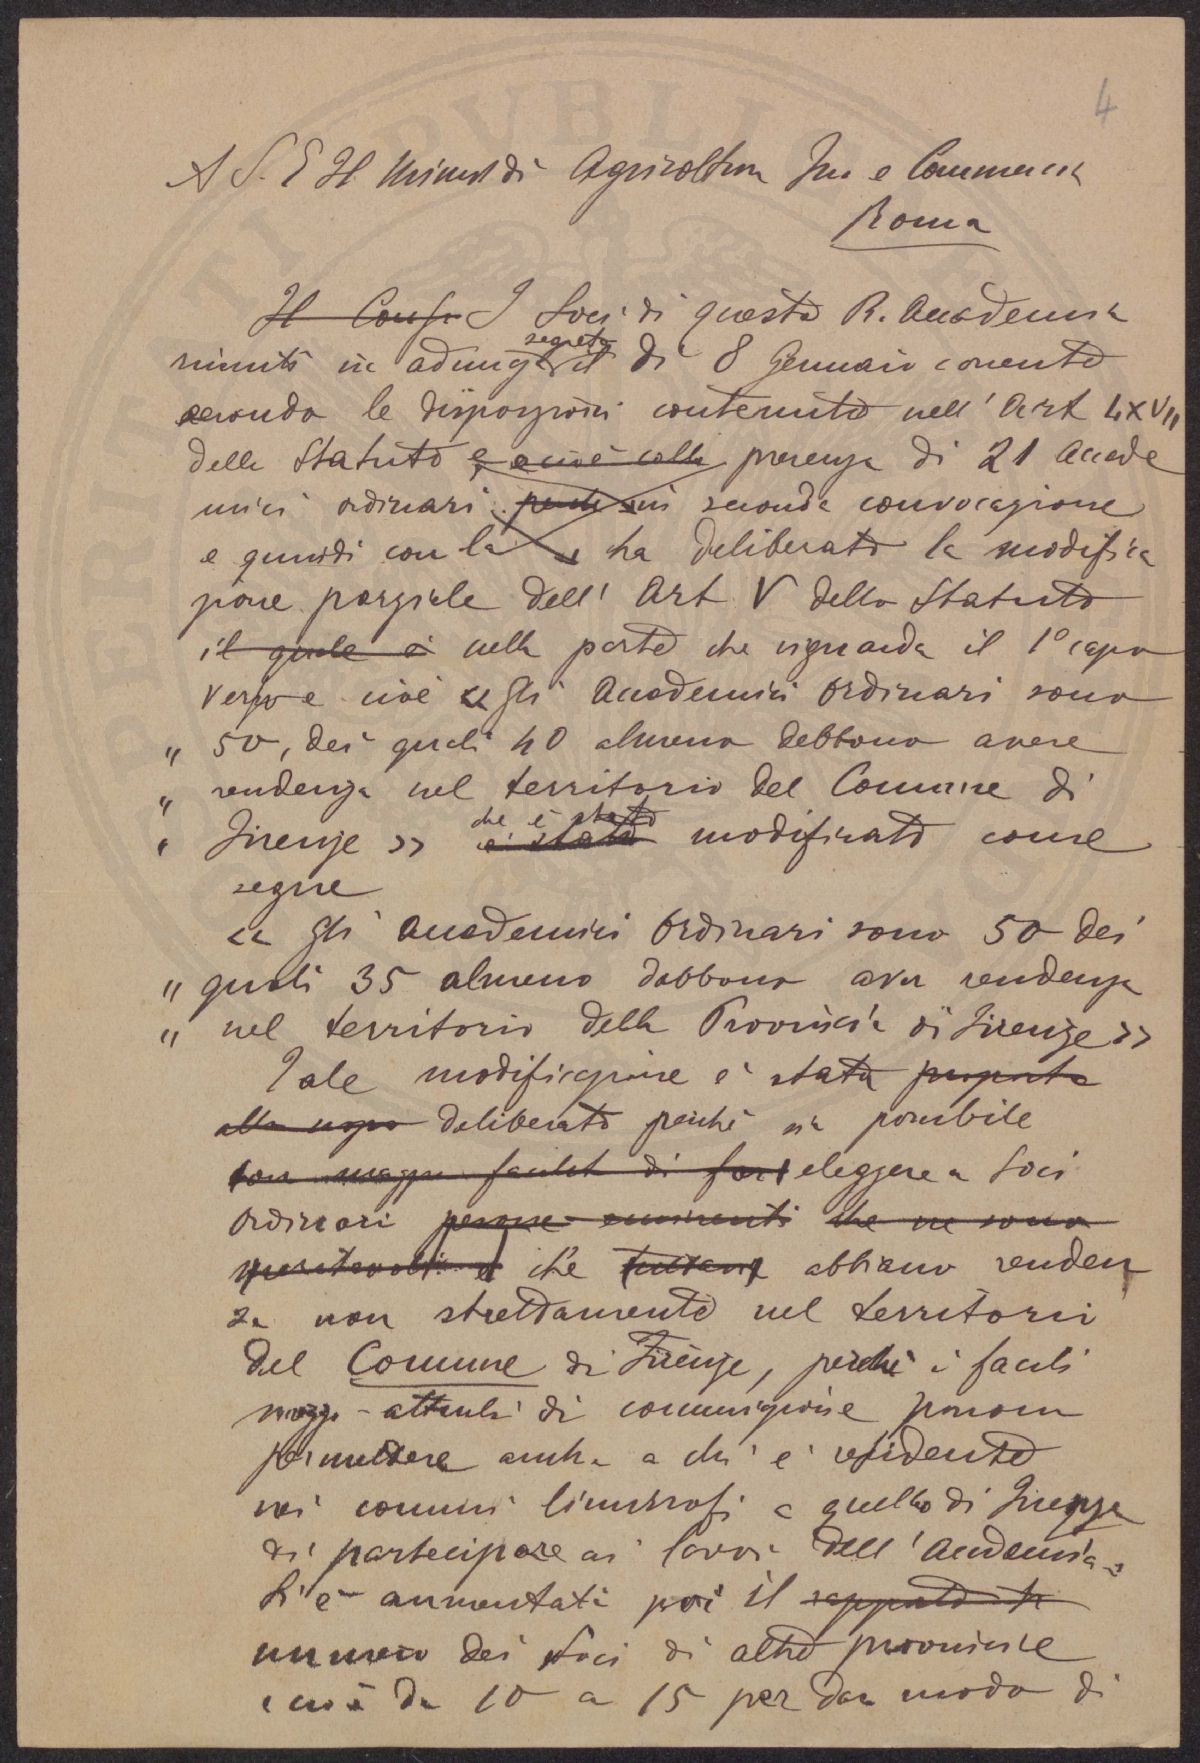 4
A S. E Il Minist di Agricoltura In. e Commercio
Roma
Il Consi I Soci di questa R. Accademia
riuniti in adunza segreta il dì 8 Gennaio corrente
secondo le disposizioni contenute nell' Art LXVII
dello Statuto e cioè colla presenza di 21 Accade
mici ordinari perché in seconda convocazione
e quindi con la e ha deliberato la modifica
zione parziale dell' Art V dello Statuto
il quale è nella parte che riguarda il 1° capo
verso e cioè « Gli Accademici ordinari sono
" 50, dei quali 40 almeno debbono avere
" residenza nel territorio del Comune di
" Firenze » è stato che è stato modificato come
segue
« Gli Accademici Ordinari sono 50 dei
" quali 35 almeno debbono aver residenza
" nel territorio della Provincia di Firenze »
Tale modificazione è stata proposta
alla deliberata perché sia possibile
con maggr facilit di far eleggere a Soci
Ordinari persone eminenti che ne sono
meritevoli e che abbiano residen
za non strettamente nel territorio
del Comune di Firenze, perché i facili
mezzi attuali di comunizione possono
permettere anche a chi è residente
nei comuni limitrofi a quello di Firenze
di partecipare ai lavori dell' Accademia.
Si è aumentati poi il rapporto
numero dei Soci di altre provincie
cioè da 10 a 15 per dar modo di